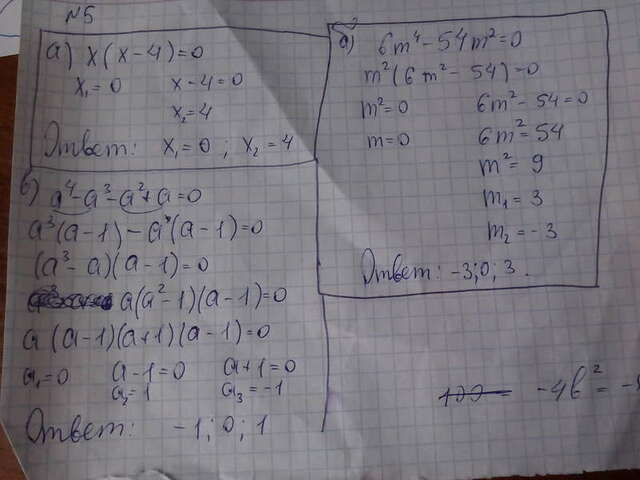 №5
а) x(x-4)=0
x₁=0 x-4=0
x₂=4
Ответ: x₁=0; x₂=4
в) a⁴-a³-a²+a=0
a³(a-1)-a(a-1)=0
(a³-a)(a-1)=0
a(a²-1)(a-1)=0
a(a-1)(a+1)(a-1)=0
a₁=0 a-1=0 a+1=0
a₂=1 a₃=-1
Ответ: -1; 0; 1
б) 6m⁴-54m²=0
m²(6m²-54)=0
m²=0 6m²-54=0
m=0 6m²=54
m²=9
m₁=3
m₂=-3
Ответ: -3; 0; 3.
-4b²=-